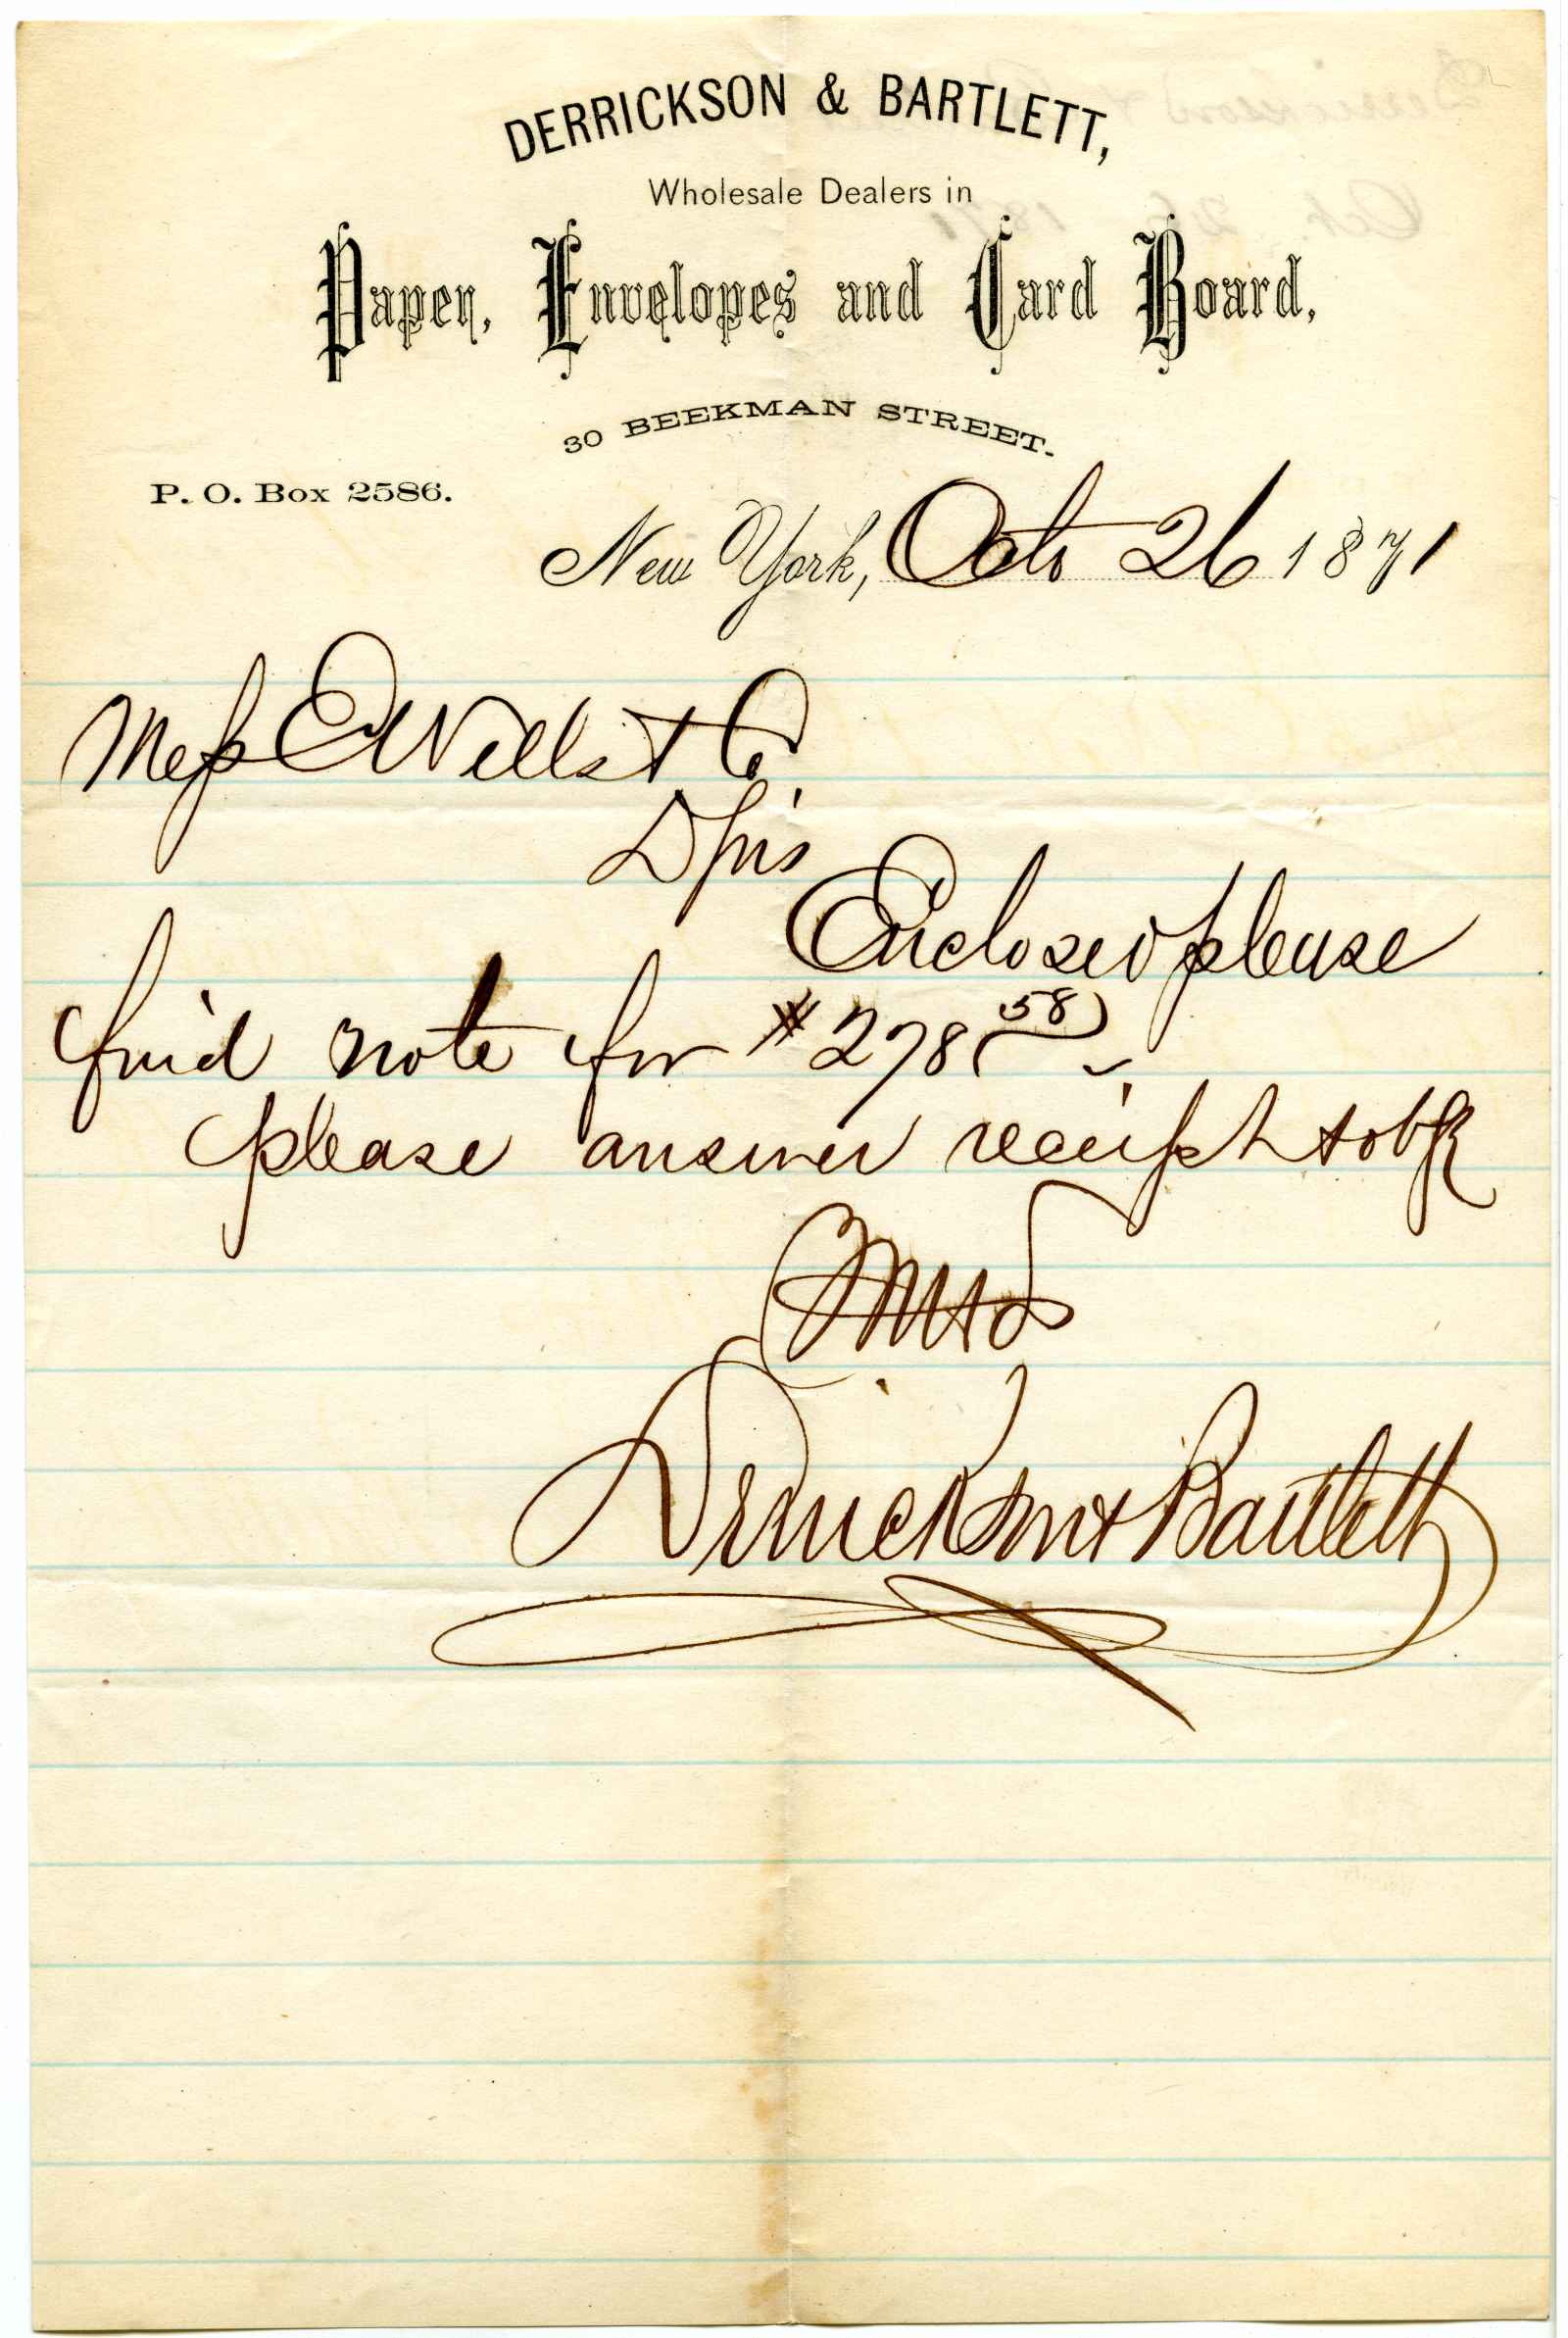 DERRICKSON & BARTLETT,
Wholesale Dealers in
Paper, Envelopes and Card Board,
30 BEEKMAN STREET.
P. O. Box 2586.
New York, Octo 26 1871
Mess E Wells & Co
D Sirs
Enclosed please
find note for $278 58
please answer receipt & oblg
Yours
Derrickson & Bartlett